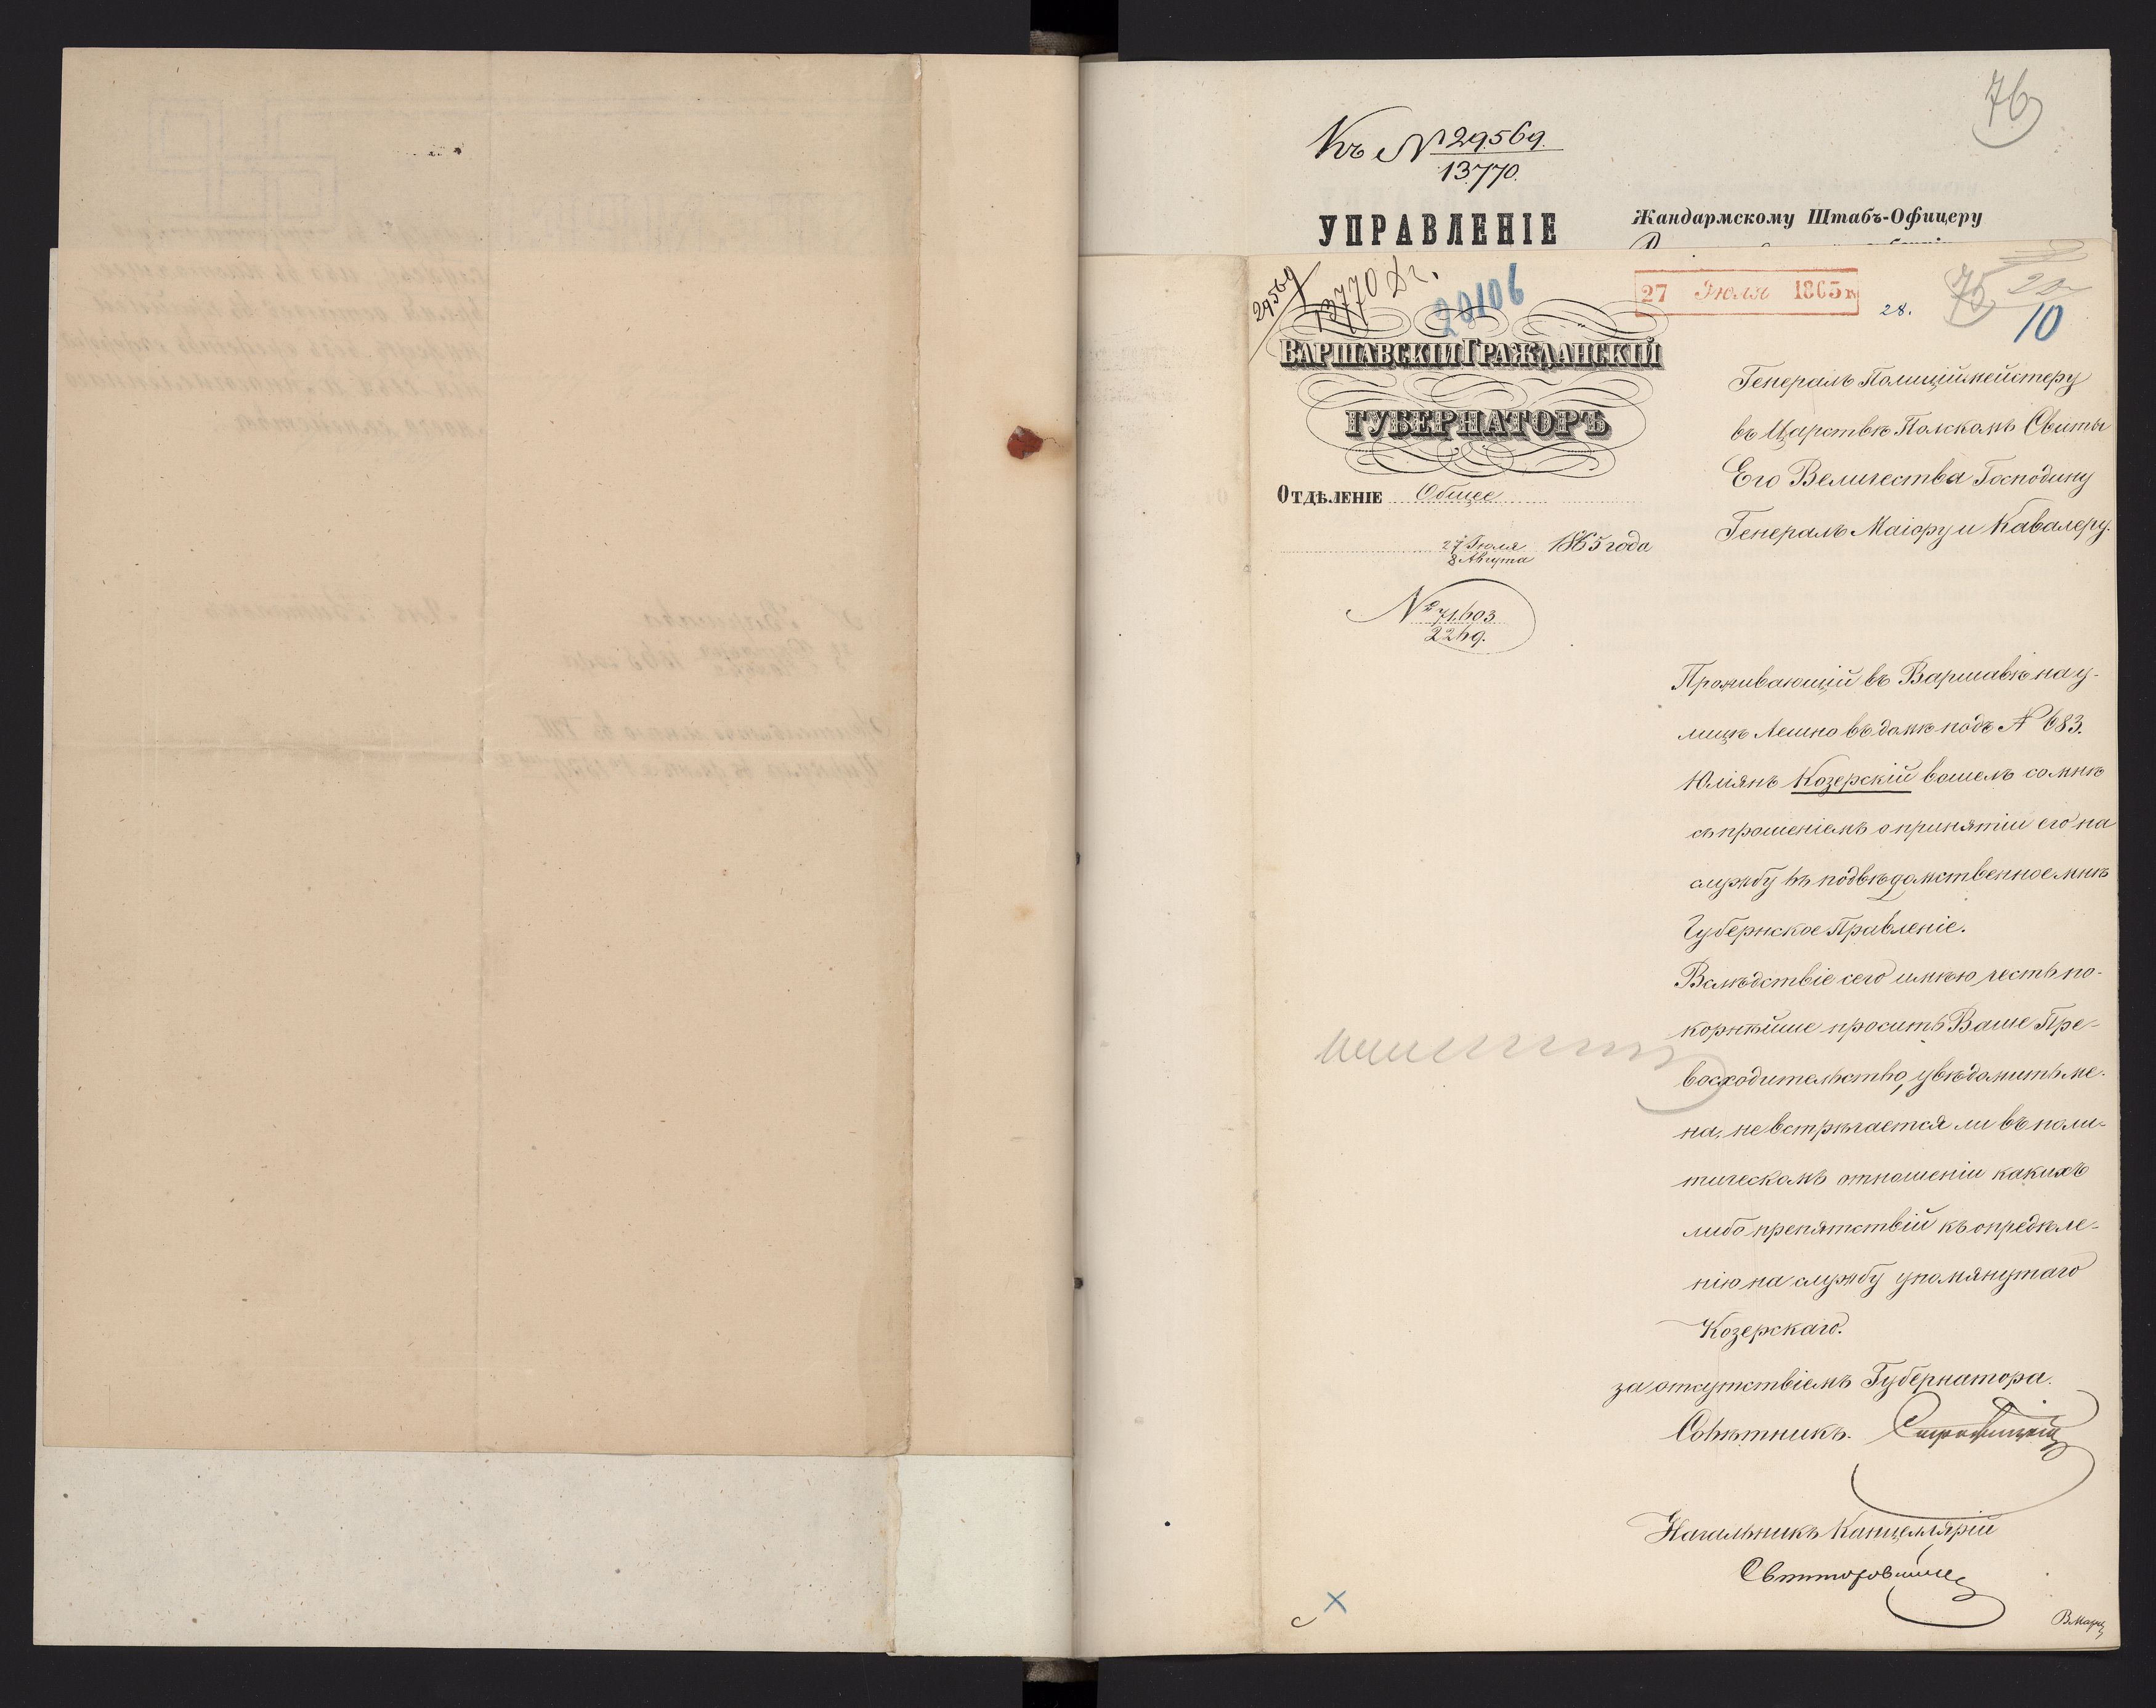 76
Къ № 29569.
13770.
УПРАВЛЕНІЕ
Жандармскому Штабъ-Офицеру
29569
13770
20106
27 Июля 1865 г.
28.
75
10
ВАРШАВСКІЙ ГРАЖДАНСКІЙ
ГУБЕРНАТОРЪ
ОТДѢЛЕНІЕ Общее
27 Июля
8 Августа
1865 года
№ 71.603
2269.
Генералъ Полиціймейстеру
въ Царствѣ Полскомъ Свиты
Его Величества Господину
Генералъ Маіору и Кавалеру.
Проживающій въ Варшавѣ на у-
лицѣ Лешно въ домѣ подъ № 683.
Юліянъ Козерскій вошелъ со мнѣ
съ прошеніемъ о принятіи его на
службу въ подвѣдомственное мнѣ
Губернское Правленіе.
Вслѣдствіе сего имѣю честь по-
корнѣйше просить Ваше Пре-
восходительство, увѣдомить ме-
ня, не встрѣчается ли въ поли-
тическомъ отношеніи какихъ
либо препятствій къ опредѣле-
нію на службу упомянутаго
Козерскаго.
за отсутствіемъ Губернатора.
Совѣтникъ.
Начальникъ Канцелляріи